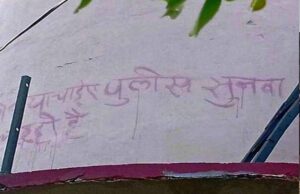 चाहिए पुलीस सुनवा
रही है